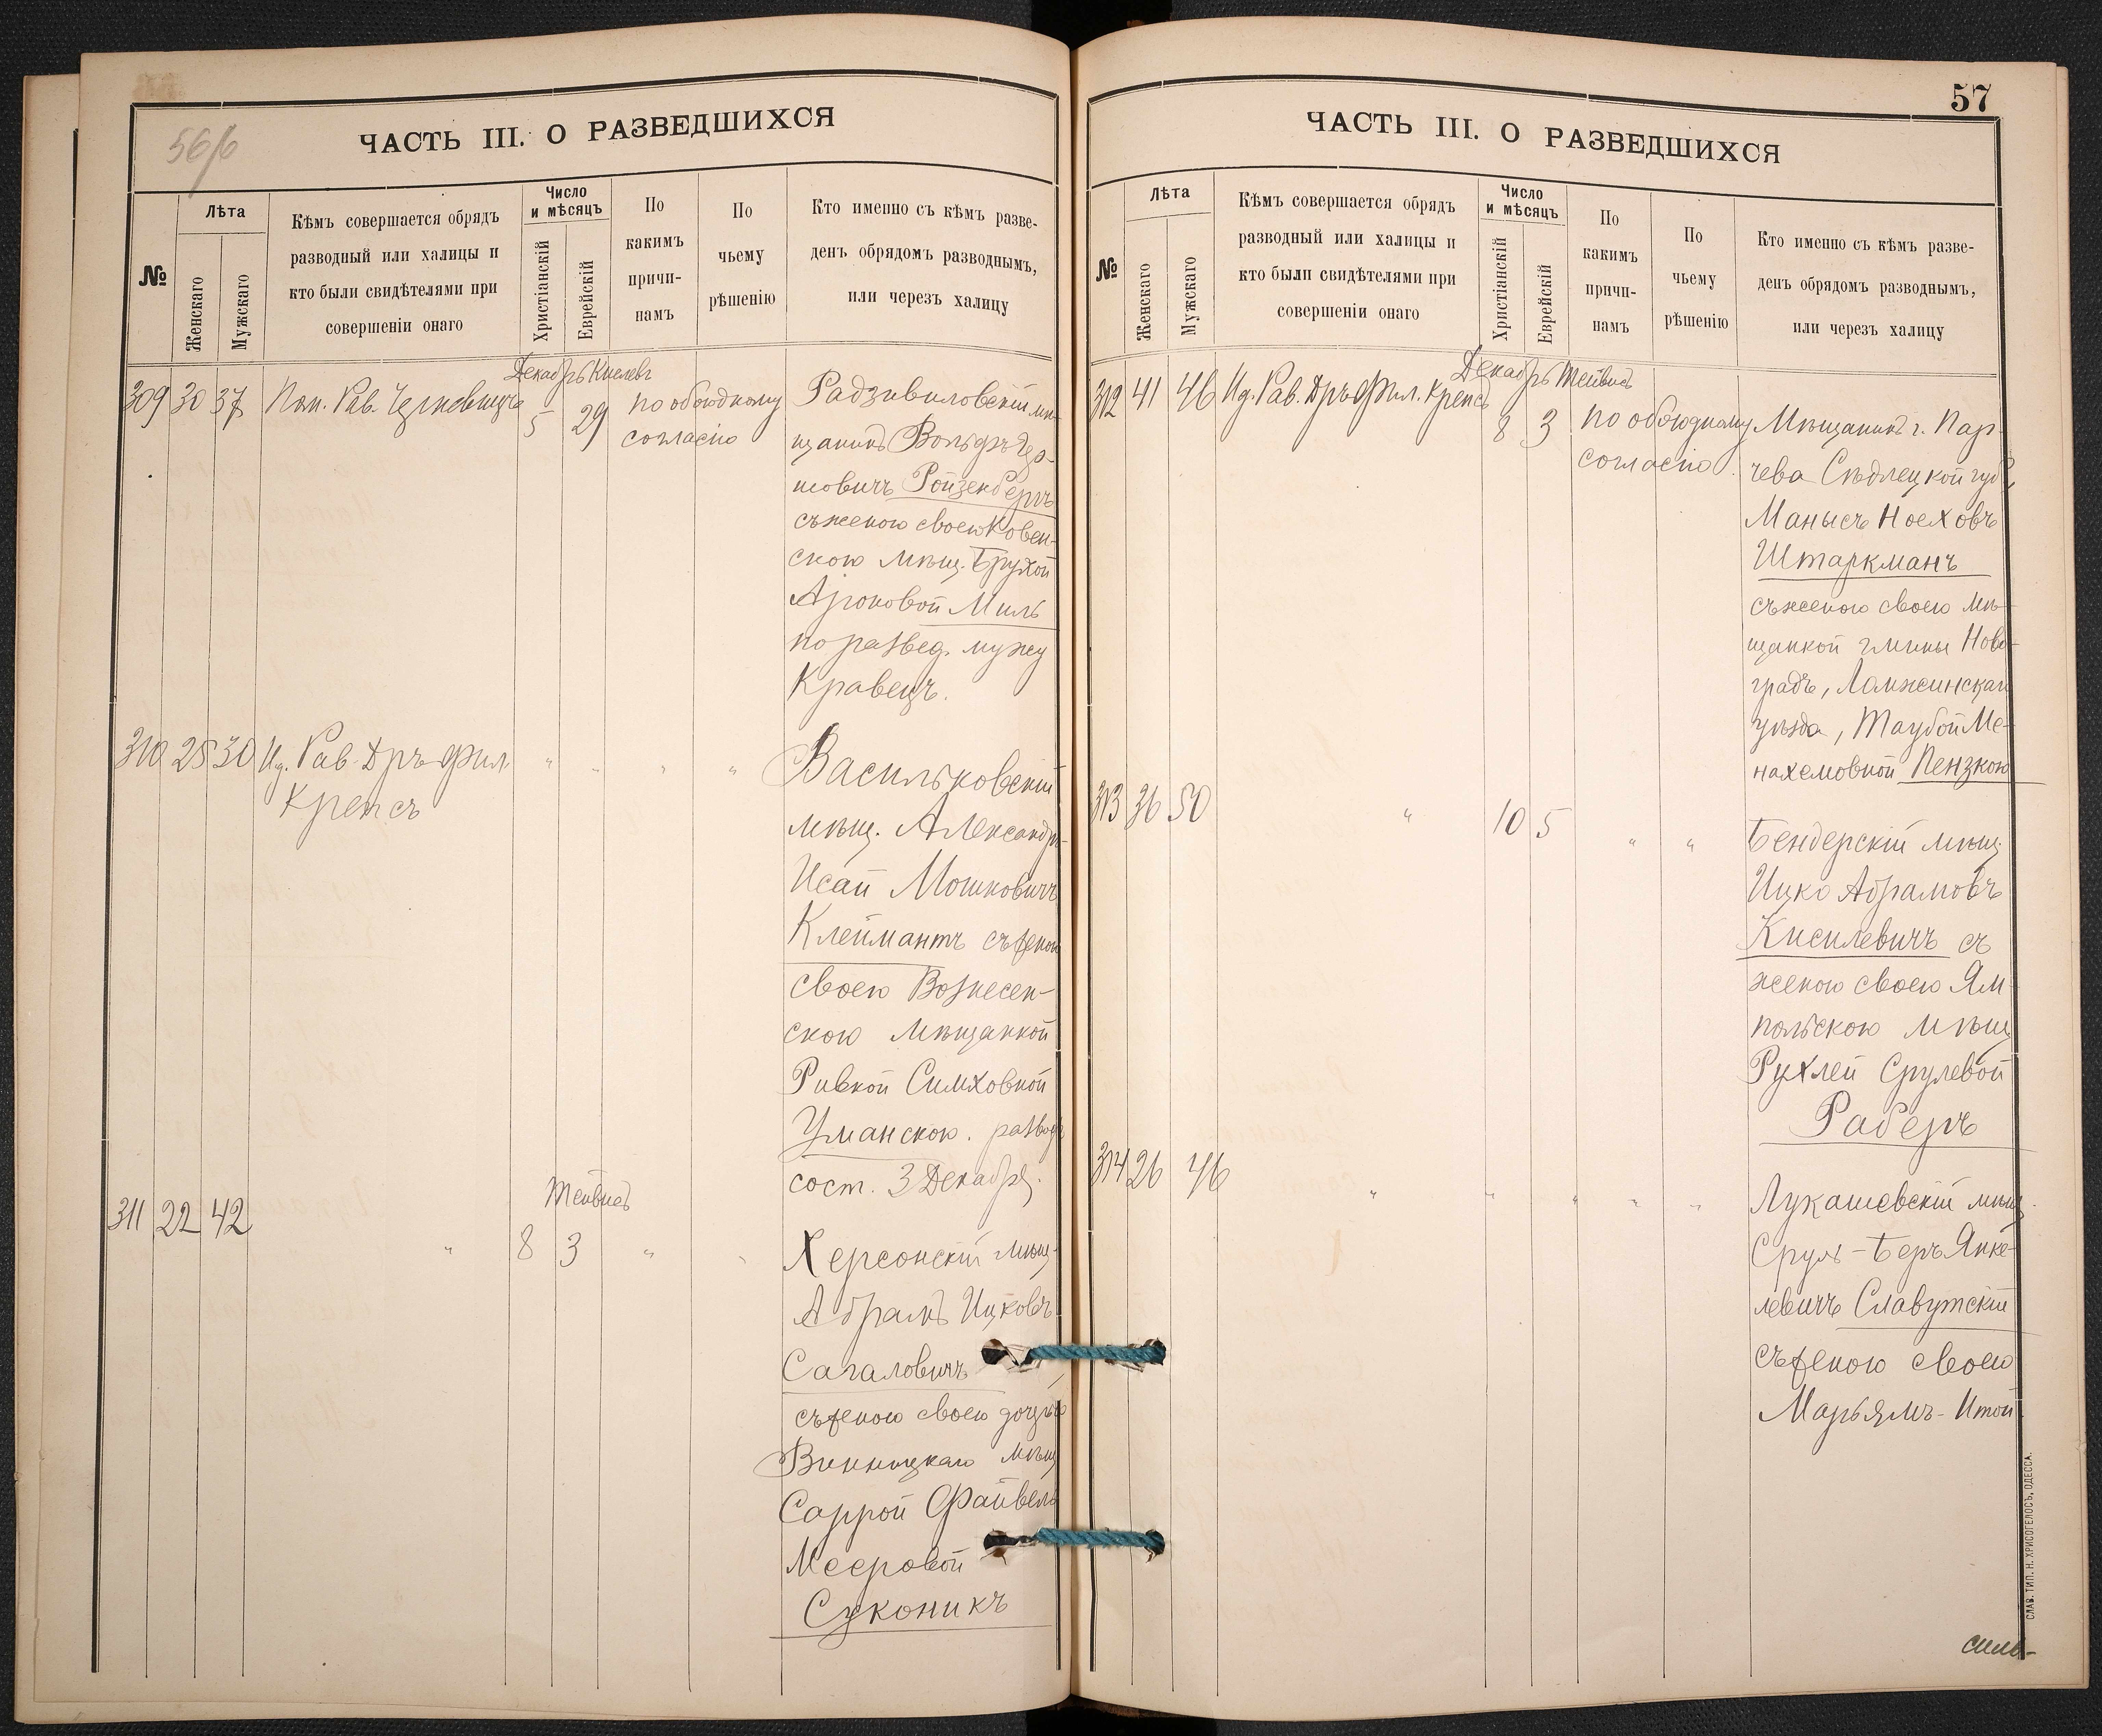 56/б
ЧАСТЬ III. О РАЗВЕДШИХСЯ
№
Лѣта
Женскаго
Мужскаго
Кѣмъ совершается обрядъ
разводный или халицы и
кто были свидѣтелями при
совершеніи онаго
Число
и мѣсяцъ
Христіанскій
Еврейскій
По
какимъ
причи-
намъ
По
чьему
рѣшенію
Кто именно съ кѣмъ разве-
денъ обрядомъ разводнымъ,
или черезъ халицу
Декабрь Кислевъ
309 30 37 Пом. Рав. 5 29 по обоюдному
согласію
Радзивиловскій мѣ-
щанинъ Вольфъ Гер-
шовичъ Ройзенбергъ
съ женою своею Ковен-
скою мѣщ. Брухой
Ароновой Миль
по развед. мужу
Кравецъ.
310 28 30 Ид. Рав. Дръ Фил.
Крепсъ " " " "
Васильковскій
мѣщ. Александръ-
Исай Мошковичъ
Клеймантъ съ женою
своею Вознесен-
скою мѣщанкой
Ривкой Симховной
Уманскою. разводъ
сост. 3 Декабря.
Тейвисъ
311 22 42 " 8 3 " "
Херсонскій мѣщ.
Абрамъ Ицковъ
Сагаловичъ
съ женою своею дочерью
Винницкаго мѣщ
Саррой Файвель
Мееровой
Суконикъ
57
ЧАСТЬ III. О РАЗВЕДШИХСЯ
№
Лѣта
Женскаго
Мужскаго
Кѣмъ совершается обрядъ
разводный или халицы и
кто были свидѣтелями при
совершеніи онаго
Число
и мѣсяцъ
Христіанскій
Еврейскій
По
какимъ
причи-
намъ
По
чьему
рѣшенію
Кто именно съ кѣмъ разве-
денъ обрядомъ разводнымъ,
или черезъ халицу
Декабрь Тейвисъ
312 41 46 Ид. Рав. Дръ Фил. Крепсъ 8 3 по обоюдному
согласію.
Мѣщанинъ г. Пар-
чева Сѣдлецкой губ.
Манысъ Ноеховъ
Штаркманъ
съ женою своею мѣ-
щанкой гмины Ново-
градъ, Ломжинскаго
уѣзда, Таубой Ме-
нахемовной Пензкою
313 36 50 " 10 5 " "
Бендерскій мѣщ.
Ицко Абрамовъ
Кисилевичъ съ
женою своею Ям-
польскою мѣщ
Рухлей Срулевой
Раберъ
314 26 46 " " " " "
Лукашевскій мѣщ.
Сруль-Беръ Янке-
левичъ Славутскій
съ женою своею
Марьямъ-Итой
СЛАВ. ТИП. Н. ХРИСОГЕЛОСЪ, ОДЕССА.